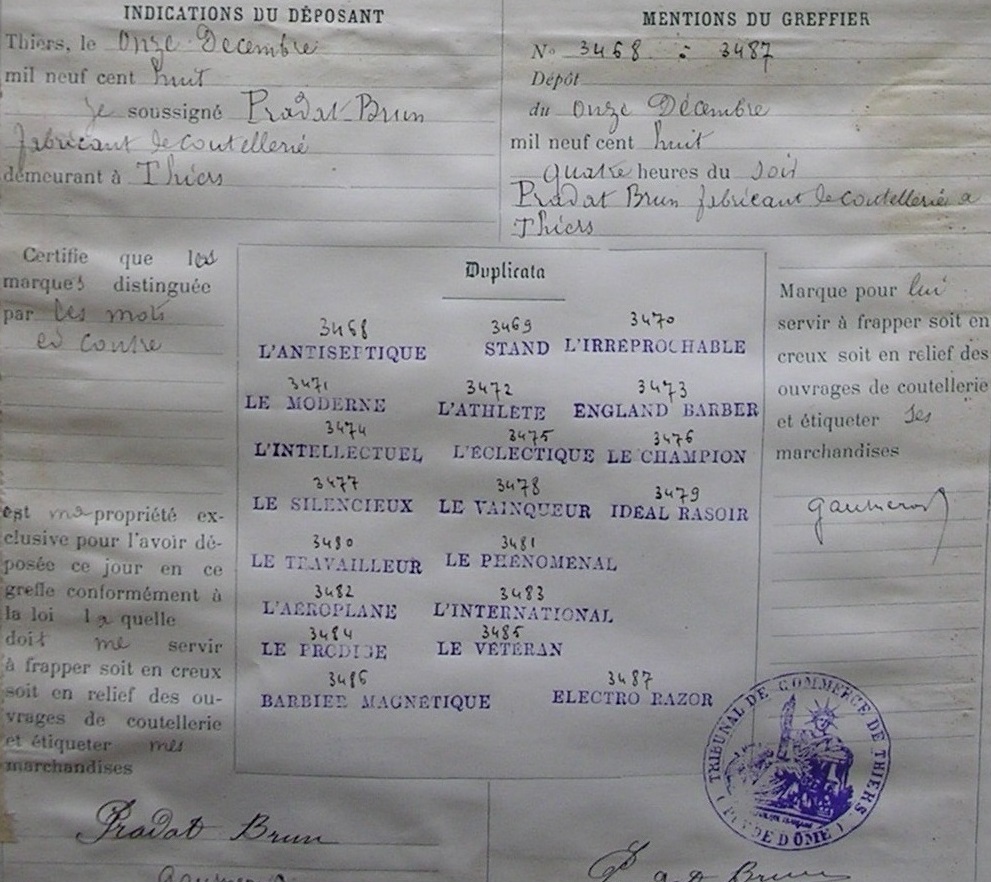 INDICATIONS DU DÉPOSANT
Thiers, le Onze Decembre
mil neuf cent huit
Je soussigné Pradat-Brun
fabricant de coutellerie
demeurant à Thiers
MENTIONS DU GREFFIER
N° 3468 : 3487
Dépôt
du Onze Décembre
mil neuf cent huit
quatre heures du soir
Pradat Brun fabricant de coutellerie a
Thiers
Certifie que les
marques distinguée
par les mots
ci contre
est ma propriété ex-
clusive pour l'avoir dé-
posée ce jour en ce
greffe conformément à
la loi la quelle
doit me servir
à frapper soit en creux
soit en relief des ou-
vrages de coutellerie
et étiqueter mes
marchandises
Duplicata
3468 3469 3470
L'ANTISEPTIQUE STAND L'IRRÉPROCHABLE
3471 3472 3473
LE MODERNE L'ATHLÈTE ENGLAND BARBER
3474 3475 3476
L'INTELLECTUEL L'ÉCLECTIQUE LE CHAMPION
3477 3478 3479
LE SILENCIEUX LE VAINQUEUR IDÉAL RASOIR
3480 3481
LE TRAVAILLEUR LE PHÉNOMÉNAL
3482 3483
L'AÉROPLANE L'INTERNATIONAL
3484 3485
LE PRODIGE LE VÉTÉRAN
3486 3487
BARBIER MAGNÉTIQUE ELECTRO RAZOR
Marque pour lui
servir à frapper soit en
creux soit en relief des
ouvrages de coutellerie
et étiqueter ses
marchandises
TRIBUNAL DE COMMERCE DE THIERS
( PUY DE DÔME )
Pradat Brun